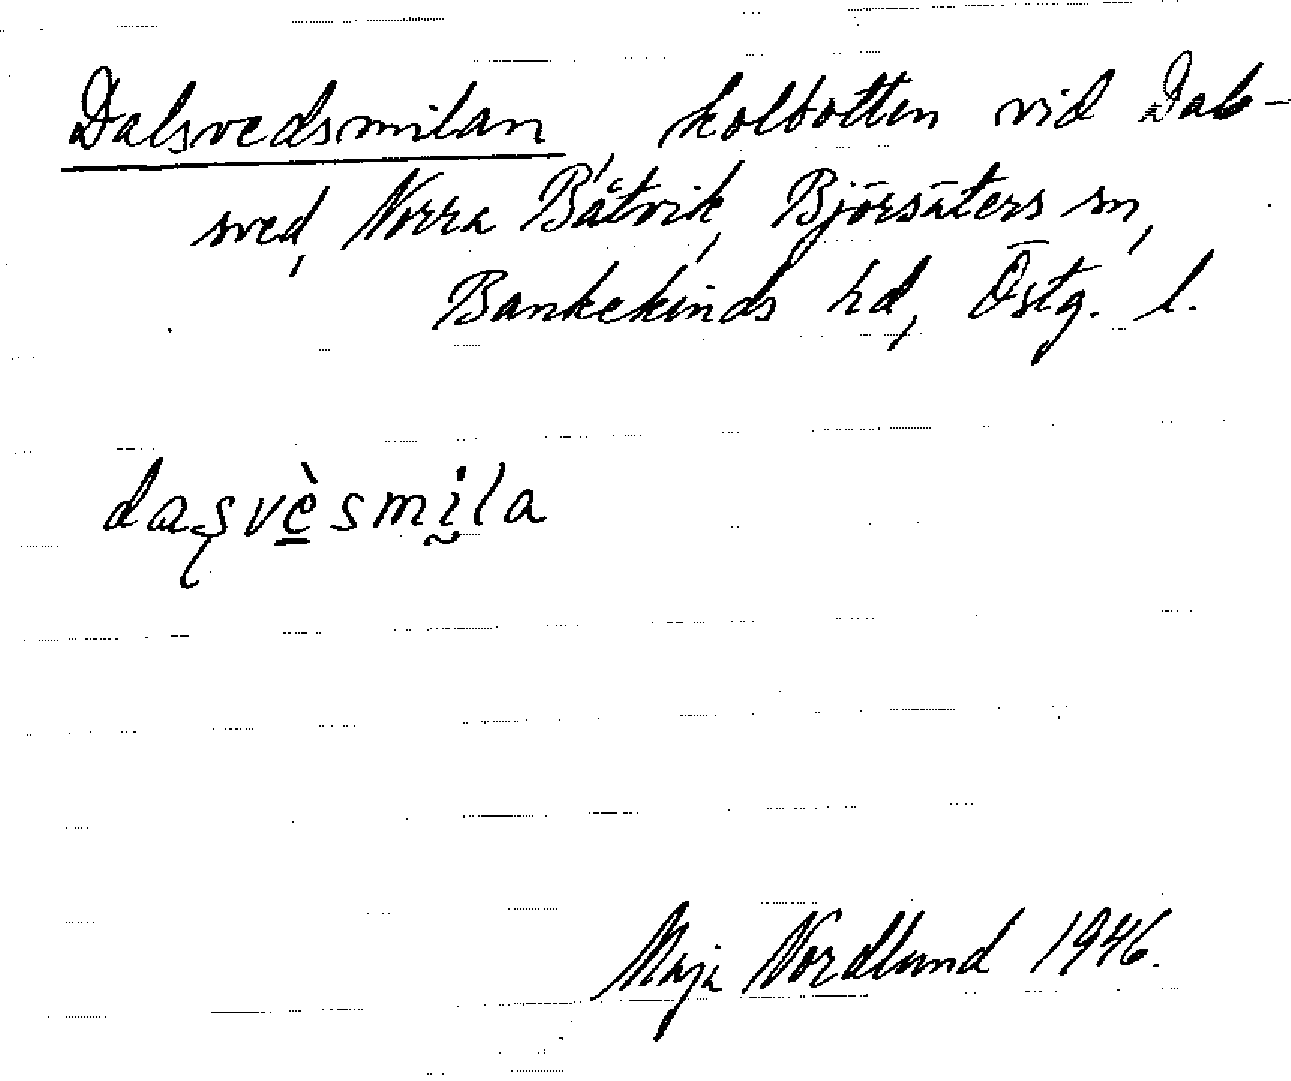 Dalsvedsmilan, kolbotten vid Dals-
sved, Norra Båtvik, Björsäters sn,
Bankekinds hd, Östg. l.
daşvèsmila
Maja Nordlund 1946.